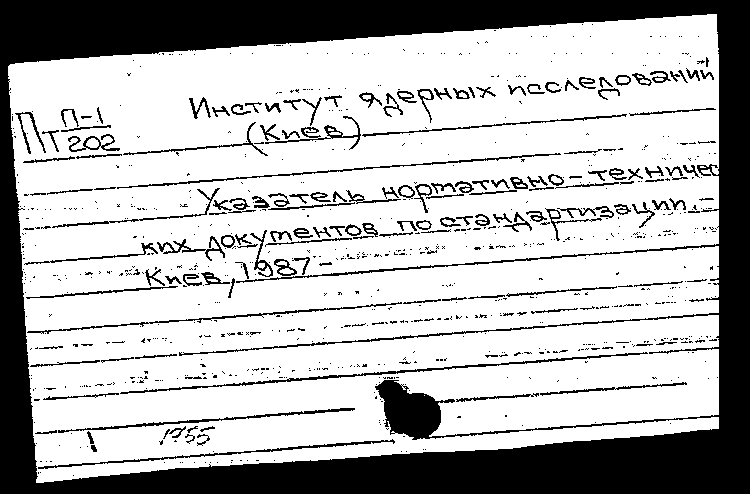 Пт П-1/202
Институт ядерных исследований
(Киев)
Указатель нормативно-техничес
ких документов по стандартизации. -
Киев, 1987 -
1955